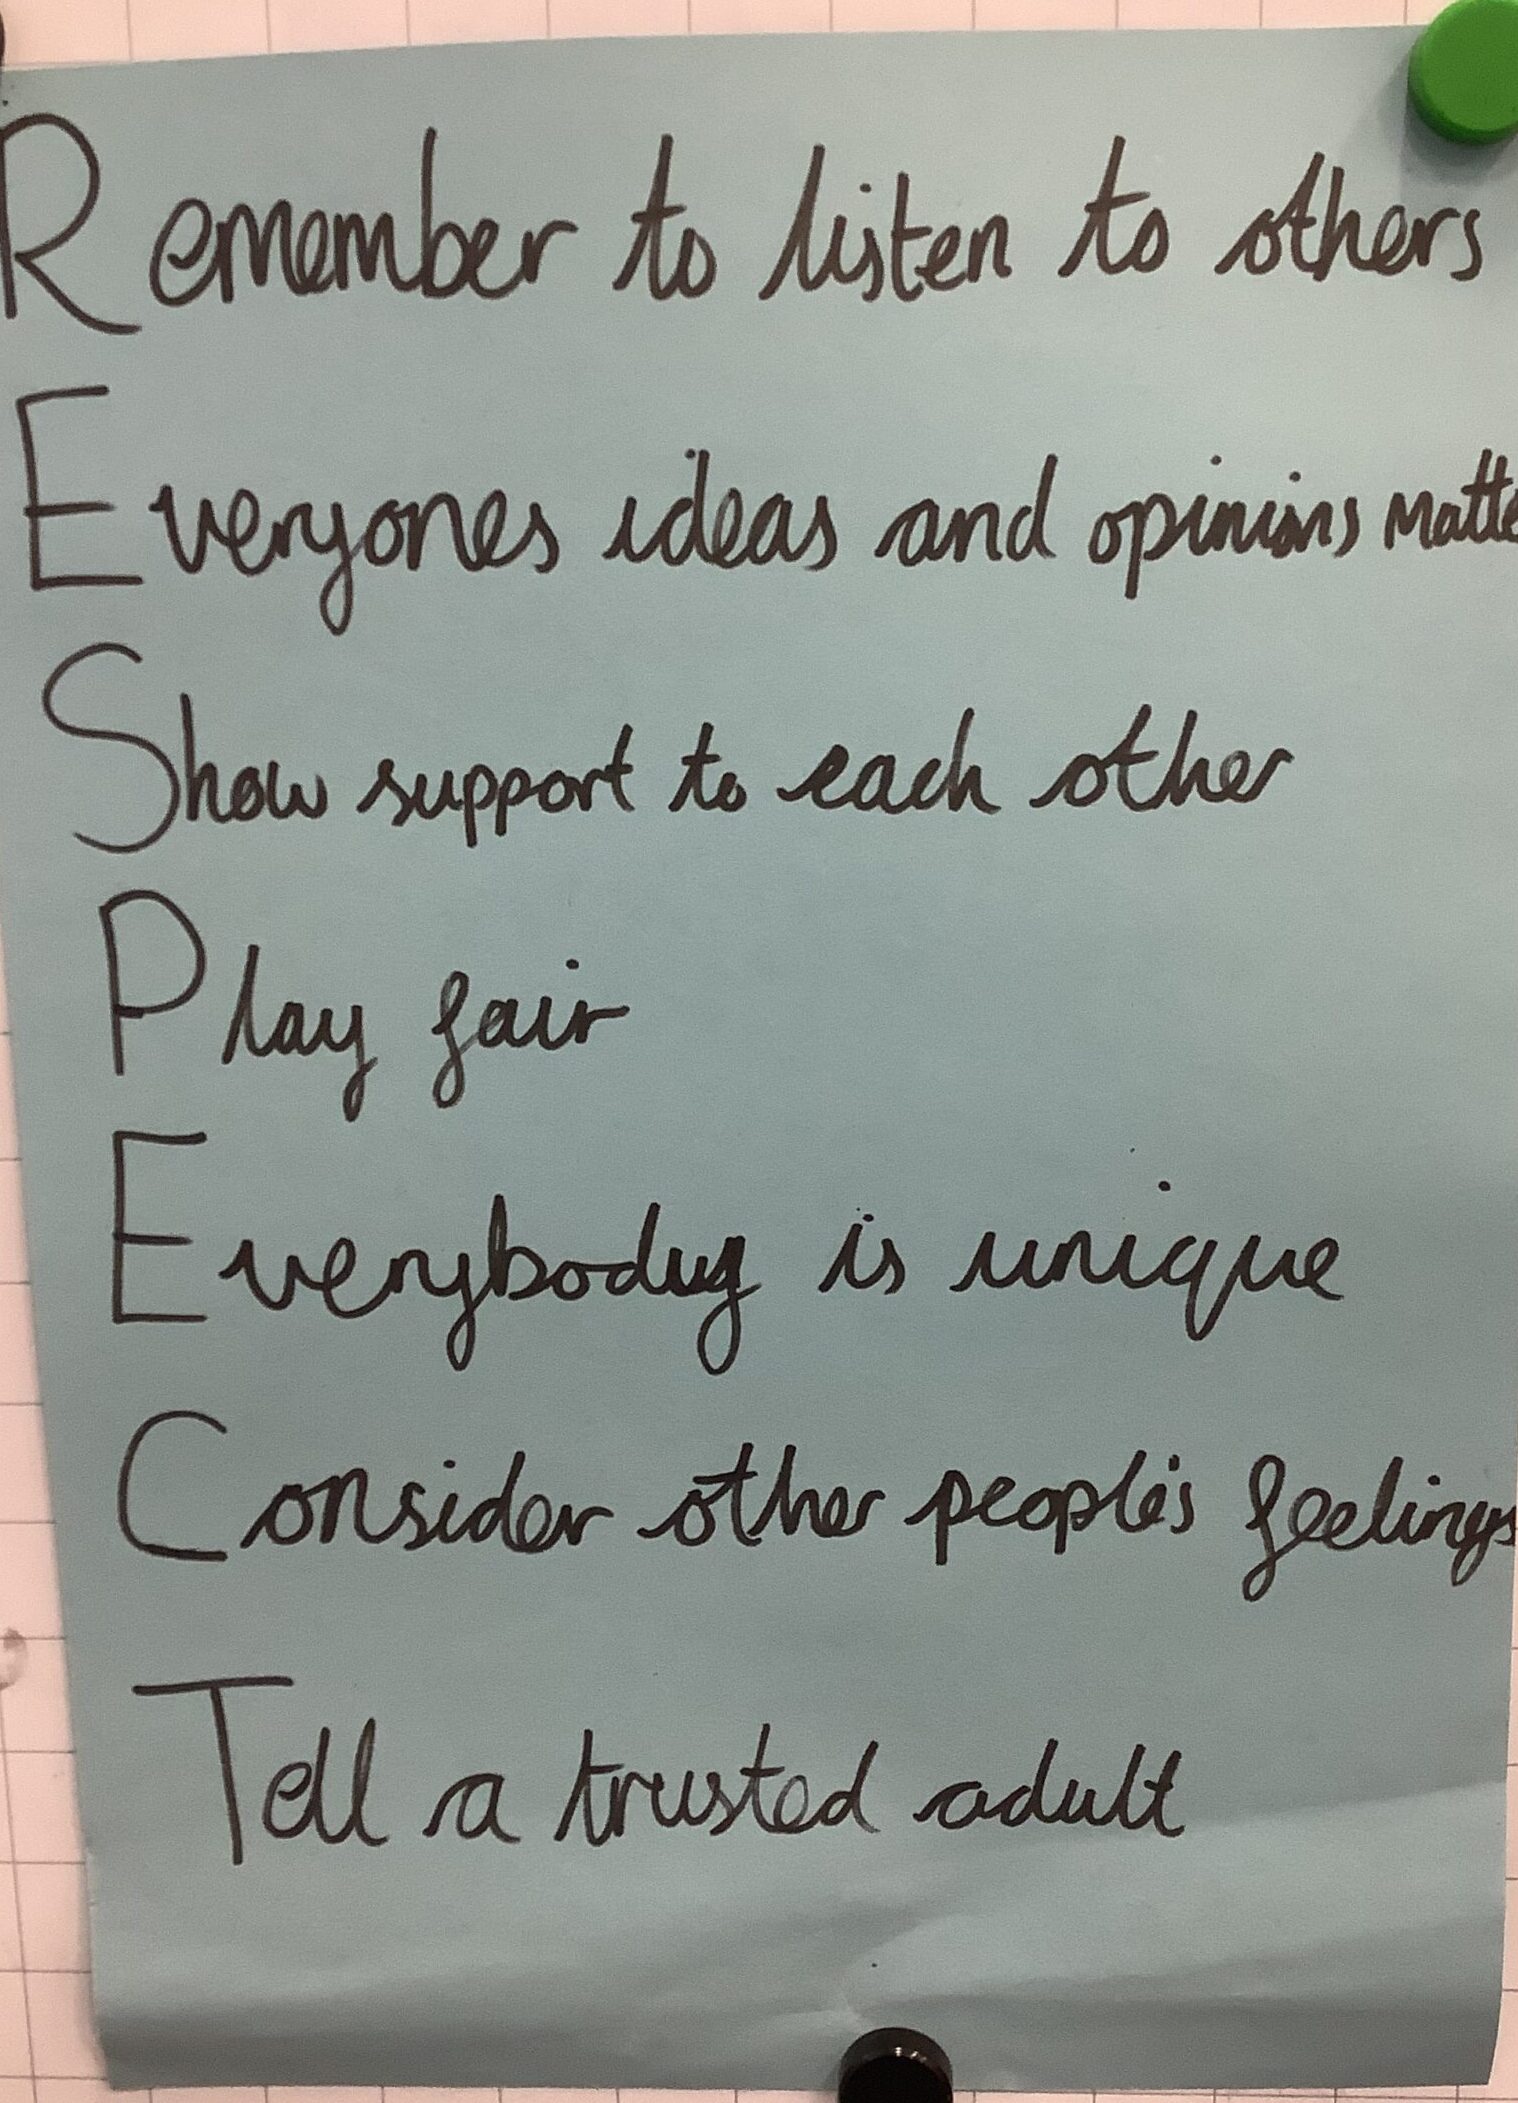 Remember to listen to others
Everyones ideas and opinions matte
Show support to each other
Play fair
Everybody is unique
Consider other people's feelings
Tell a trusted adult